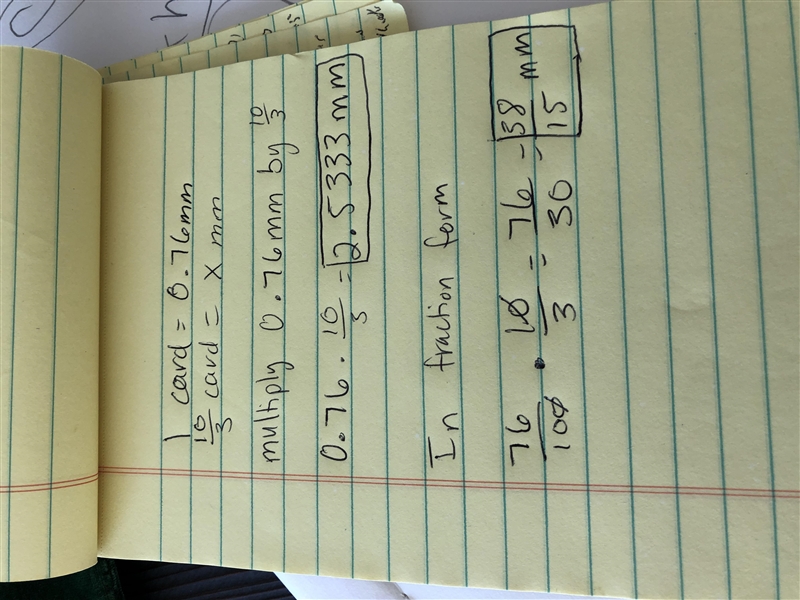 1 card = 0.76mm
10/3 card = x mm
multiply 0.76mm by 10/3
0.76 · 10/3 = 2.5333 mm
In fraction form
76/100 · 10/3 = 76/30 = 38/15 mm